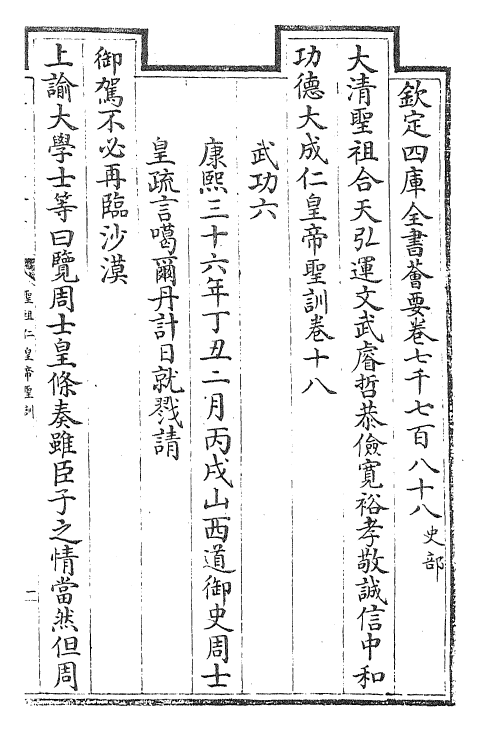 欽定四庫全書薈要卷七千七百八十八 史部
大清聖祖合天弘運文武睿哲恭儉寬裕孝敬誠信中和
功德大成仁皇帝聖訓卷十八
武功六
康熙三十六年丁丑二月丙戌山西道御史周士
皇疏言噶爾丹計日就戮請
御駕不必再臨沙漠
上諭大學士等曰覽周士皇條奏雖臣子之情當然但周
聖祖仁皇帝聖訓